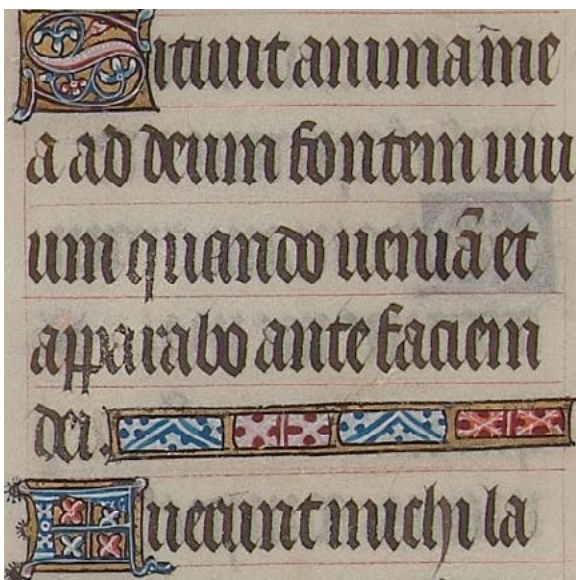 Sitiuit anima me
a ad deum fontem uiu
um quando ueniā et
apparabo ante faciem
dei.
Fuerunt michi la